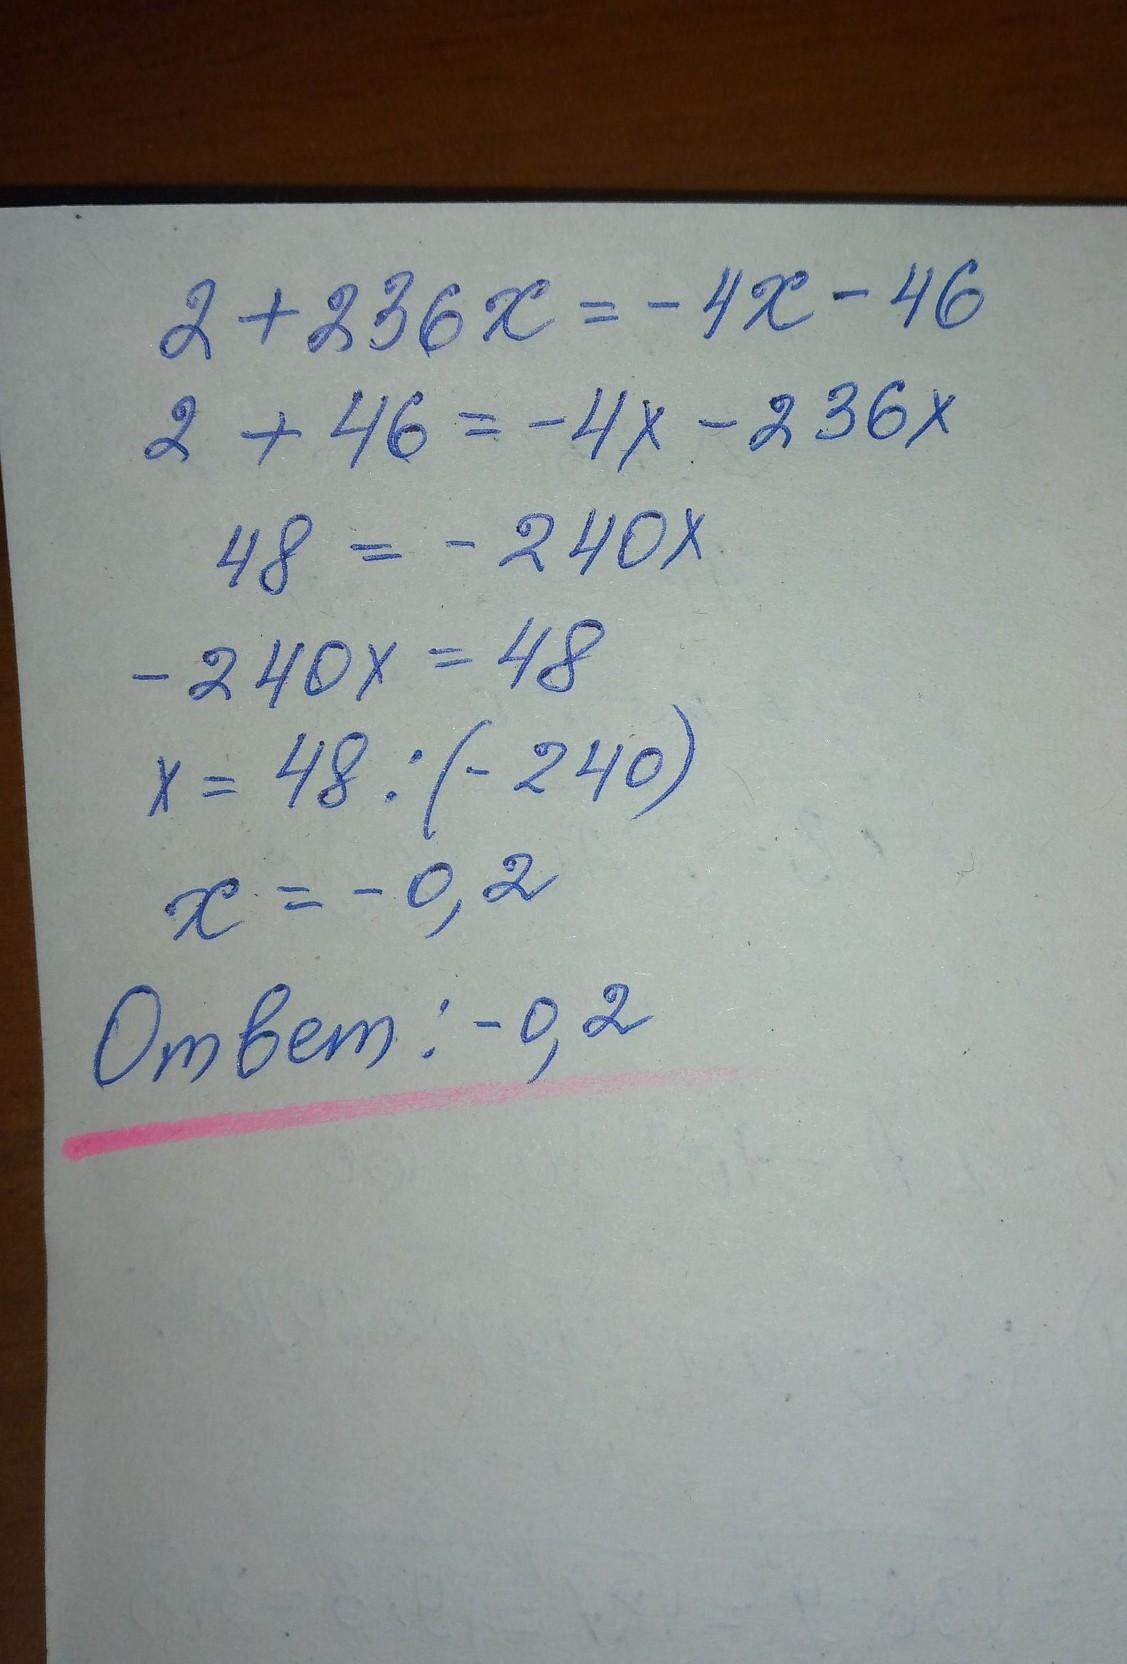 2 + 236x = -4x - 46
2 + 46 = -4x - 236x
48 = -240x
-240x = 48
x = 48 : (-240)
x = -0,2
Ответ: -0,2